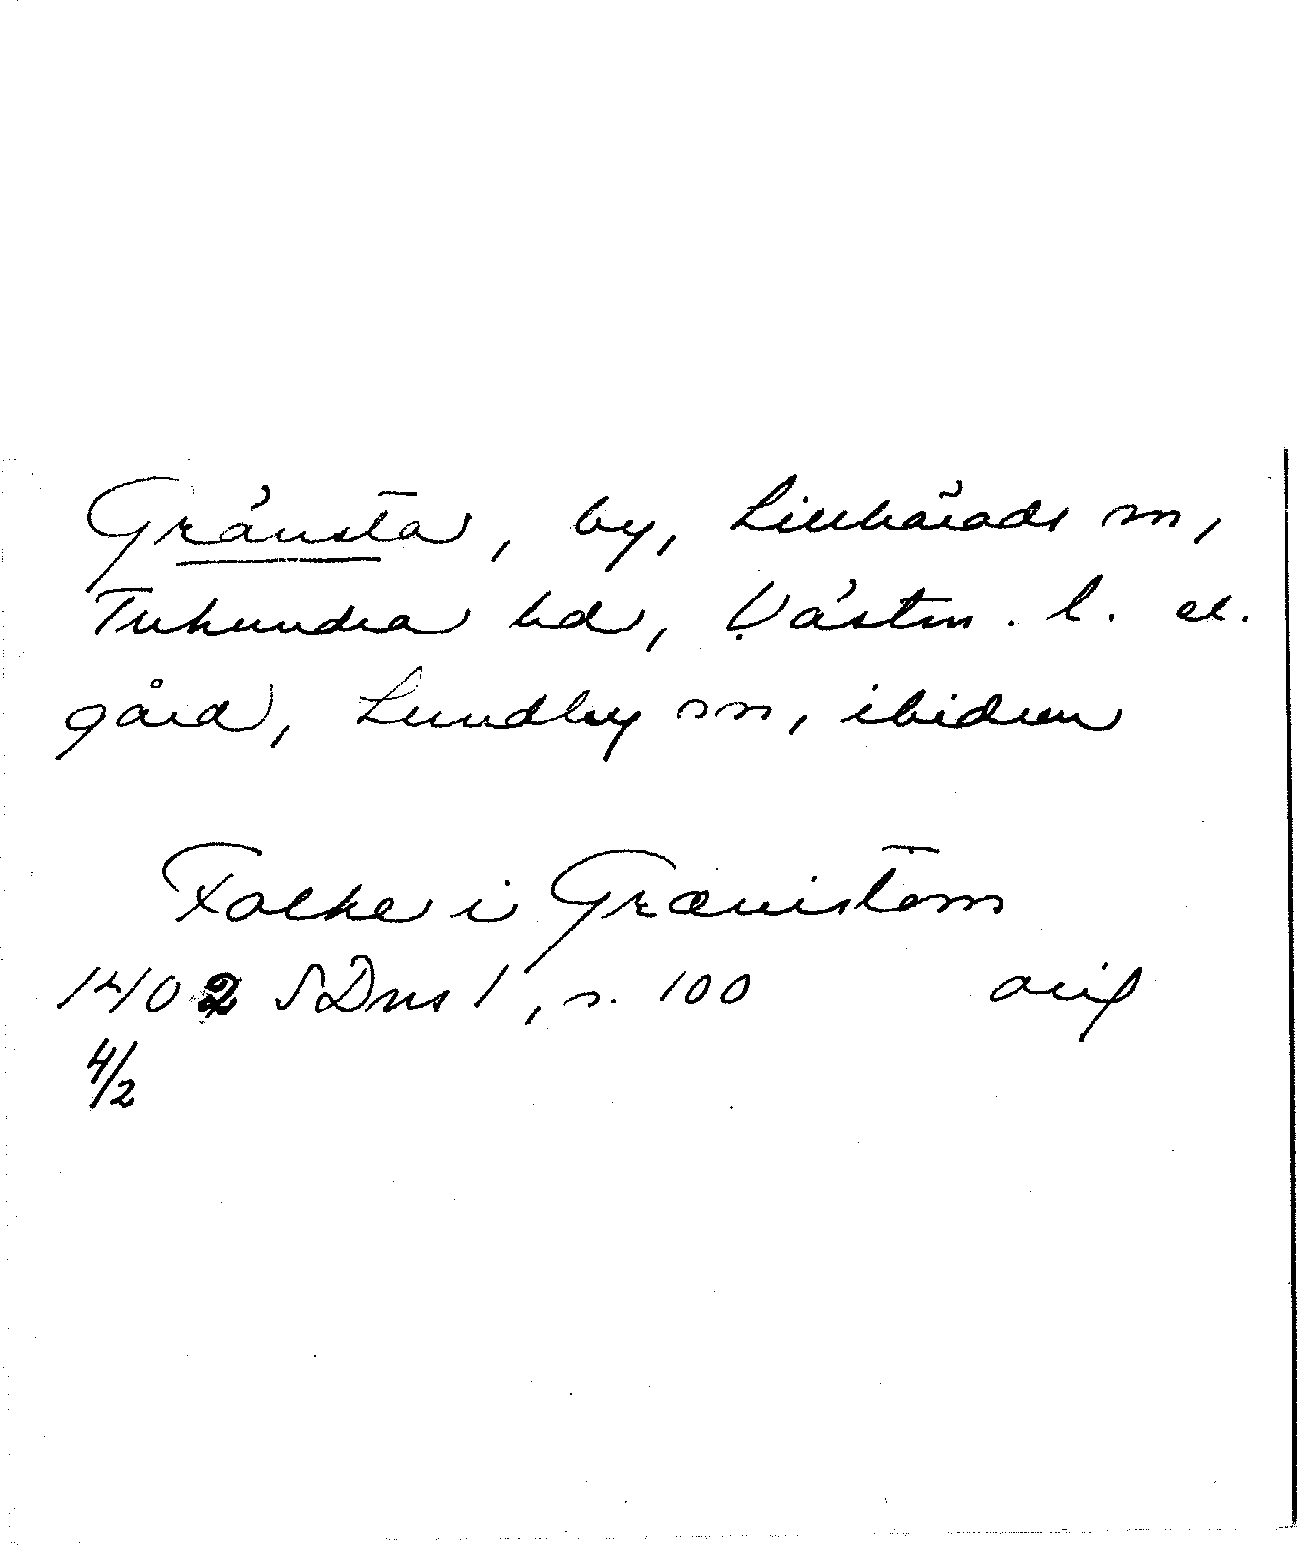 Gränsta, by, Lillhärads sn,
Tuhundra hd, Västm. l. el.
gård, Lundby sn, ibidem
Folke i Grænistom
1402 SDns 1, s. 100 orig
4/2